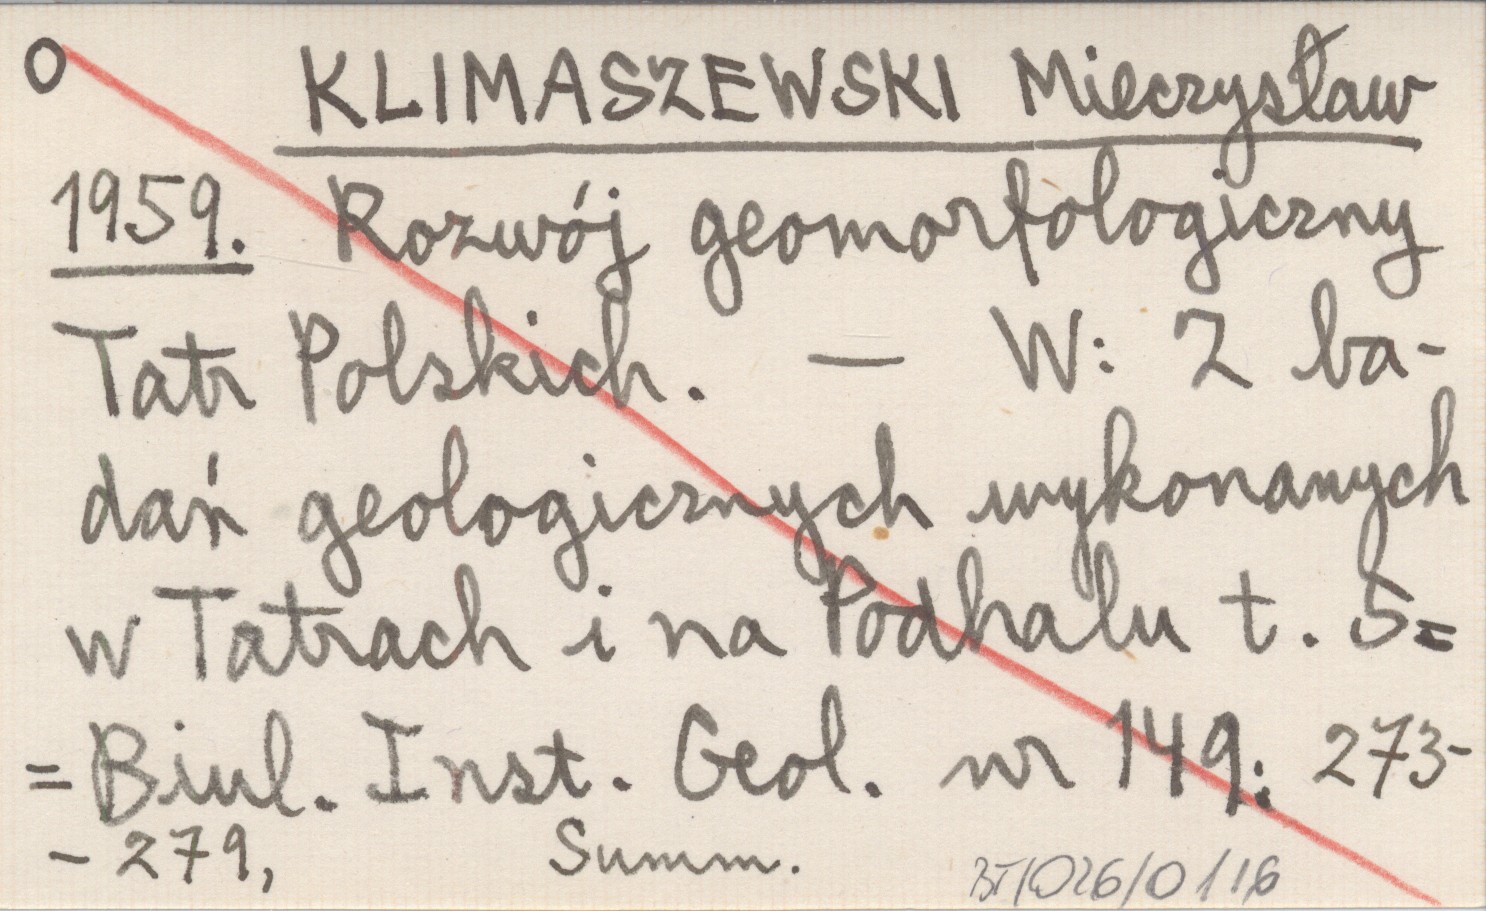 O KLIMASZEWSKI Mieczysław
1959. Rozwój geomorfologiczny
Tatr Polskich. — W: Z ba-
dań geologicznych wykonanych
w Tatrach i na Podhalu t. 5=
= Biul. Inst. Geol. nr 149: 273-
- 279, Summ.
BT/026/0/16